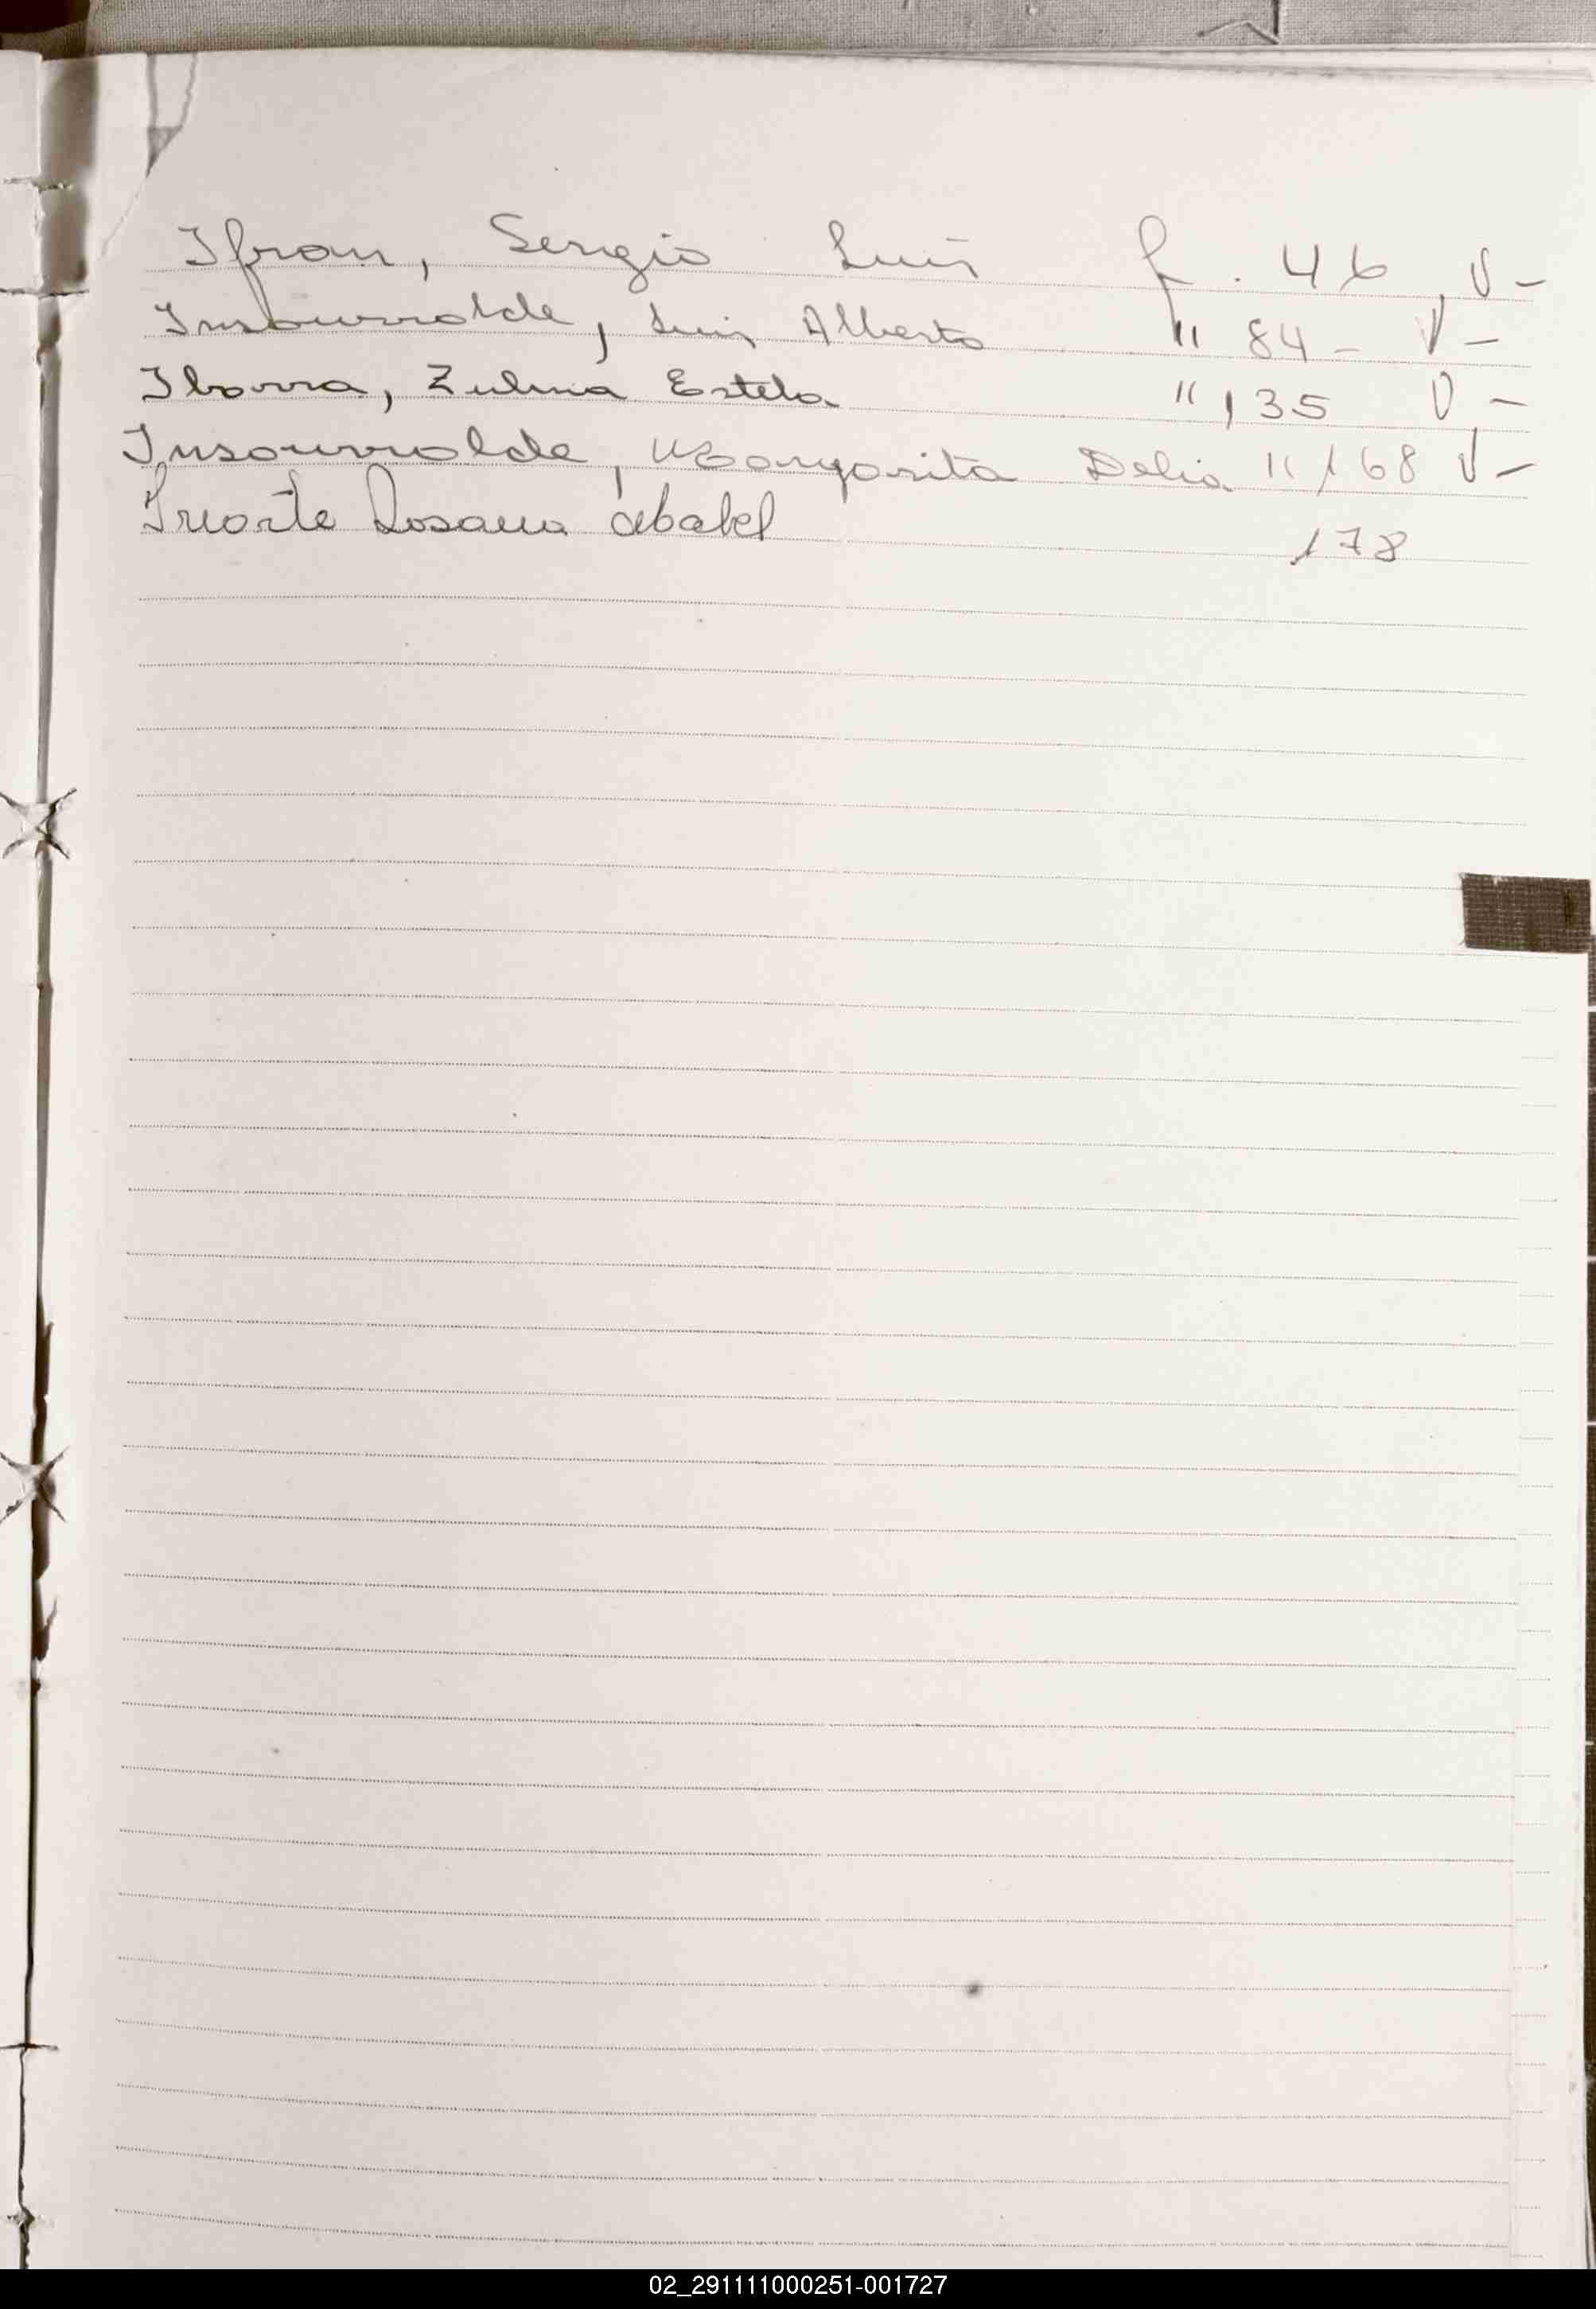 Ifran, Sergio Luis f. 46, V -
Insaurralde, Luis Alberto " 84 - V -
Ibarra, Zulma Estela " 135 V -
Insaurralde, Margarita Delia " 168 V -
Iriarte Rosana 178
02_291111000251-001727